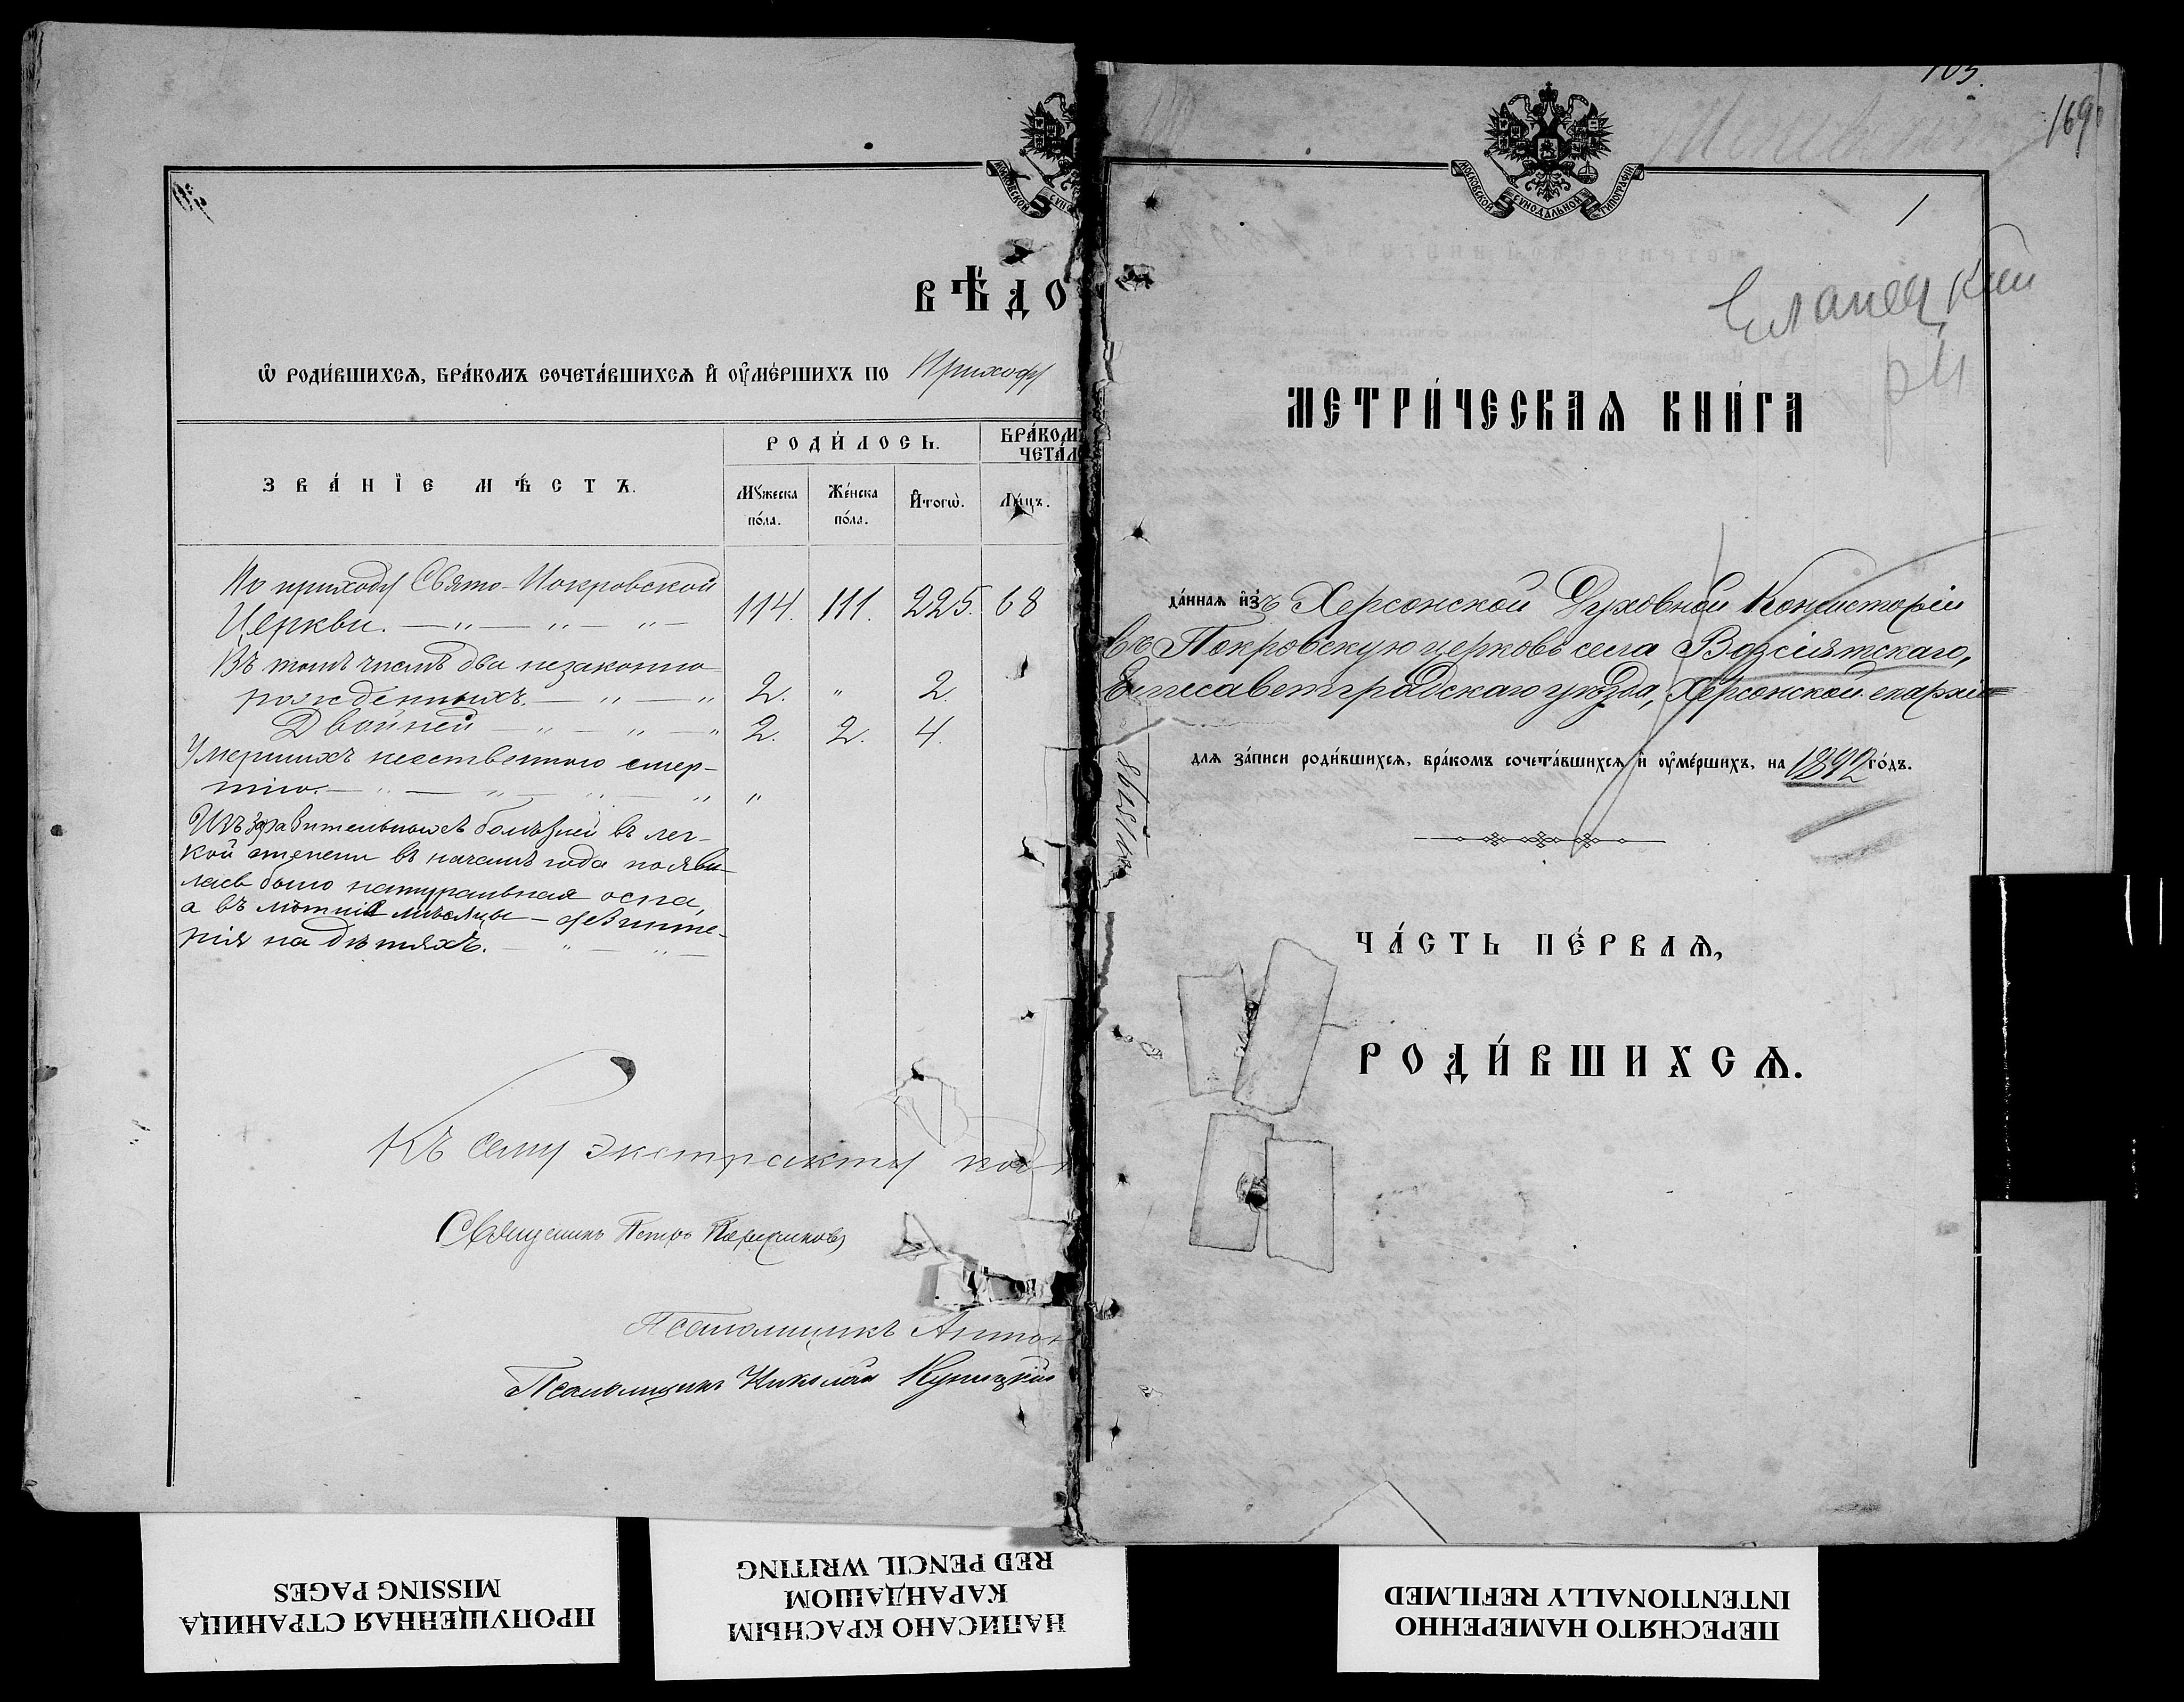 ВѢДО
Ѡ РОДИ́ВШИХСѦ, БРА́КОМЪ СОЧЕТА́ВШИХСѦ И҆ ОУ҆МЕ́РШИХЪ ПО Приходу
ЗВА́НЇЕ МѢ́СТЪ.
РОДИ́ЛОСЬ.
БРА́КОМ
ЧЕТА́Л
Мꙋ́жеска по́ла.
Же́нска по́ла.
И҆тогѡ̀.
Ли́цъ.
По приходу Свято-Покровской
Церкви. — „ — „ — „ — 114. 111. 225. 68
Въ томъ числѣ два незаконно
рожденныхъ. — „ — „ 2. „ 2.
Двойней — „ — „ — „ 2. 2. 4.
Умершихъ неестественною смер-
тію. — „ — „ — „ — „ „
Изъ заразительныхъ болѣзней въ лег-
кой степени въ началѣ года появи
лась было натуральная оспа,
а въ лѣтніе мѣсяцы — дифте-
рія на дѣтяхъ. — „ — „ —
Къ сему экстракту
Священникъ Петръ
Псаломщикъ Антон
Псаломщикъ Николай Куницкій
МОСКОВСКОЙ СУНОДАЛЬНОЙ ТИПОГРАФІИ
103.
169
1
Еланецкий
р-н
МЕТРИ́ЧЕСКАѦ КНИ́ГА
да́ннаѧ и҆зъ Херсонской Духовной Консисторіи
въ Покровскую церковь села Возсіятскаго,
Елисаветградскаго уѣзда, Херсонской епархіи
длѧ за́писи роди́вшихсѧ, бра́комъ сочета́вшихсѧ и҆ оу҆ме́ршихъ, на 1892 го́дъ.
ЧА́СТЬ ПЕ́РВАѦ,
РОДИ́ВШИХСѦ.
ПРОПУЩЕННАЯ СТРАНИЦА
MISSING PAGES
НАПИСАНО КРАСНЫМ
КАРАНДАШОМ
RED PENCIL WRITING
ПЕРЕСНЯТО НАМЕРЕННО
INTENTIONALLY REFILMED